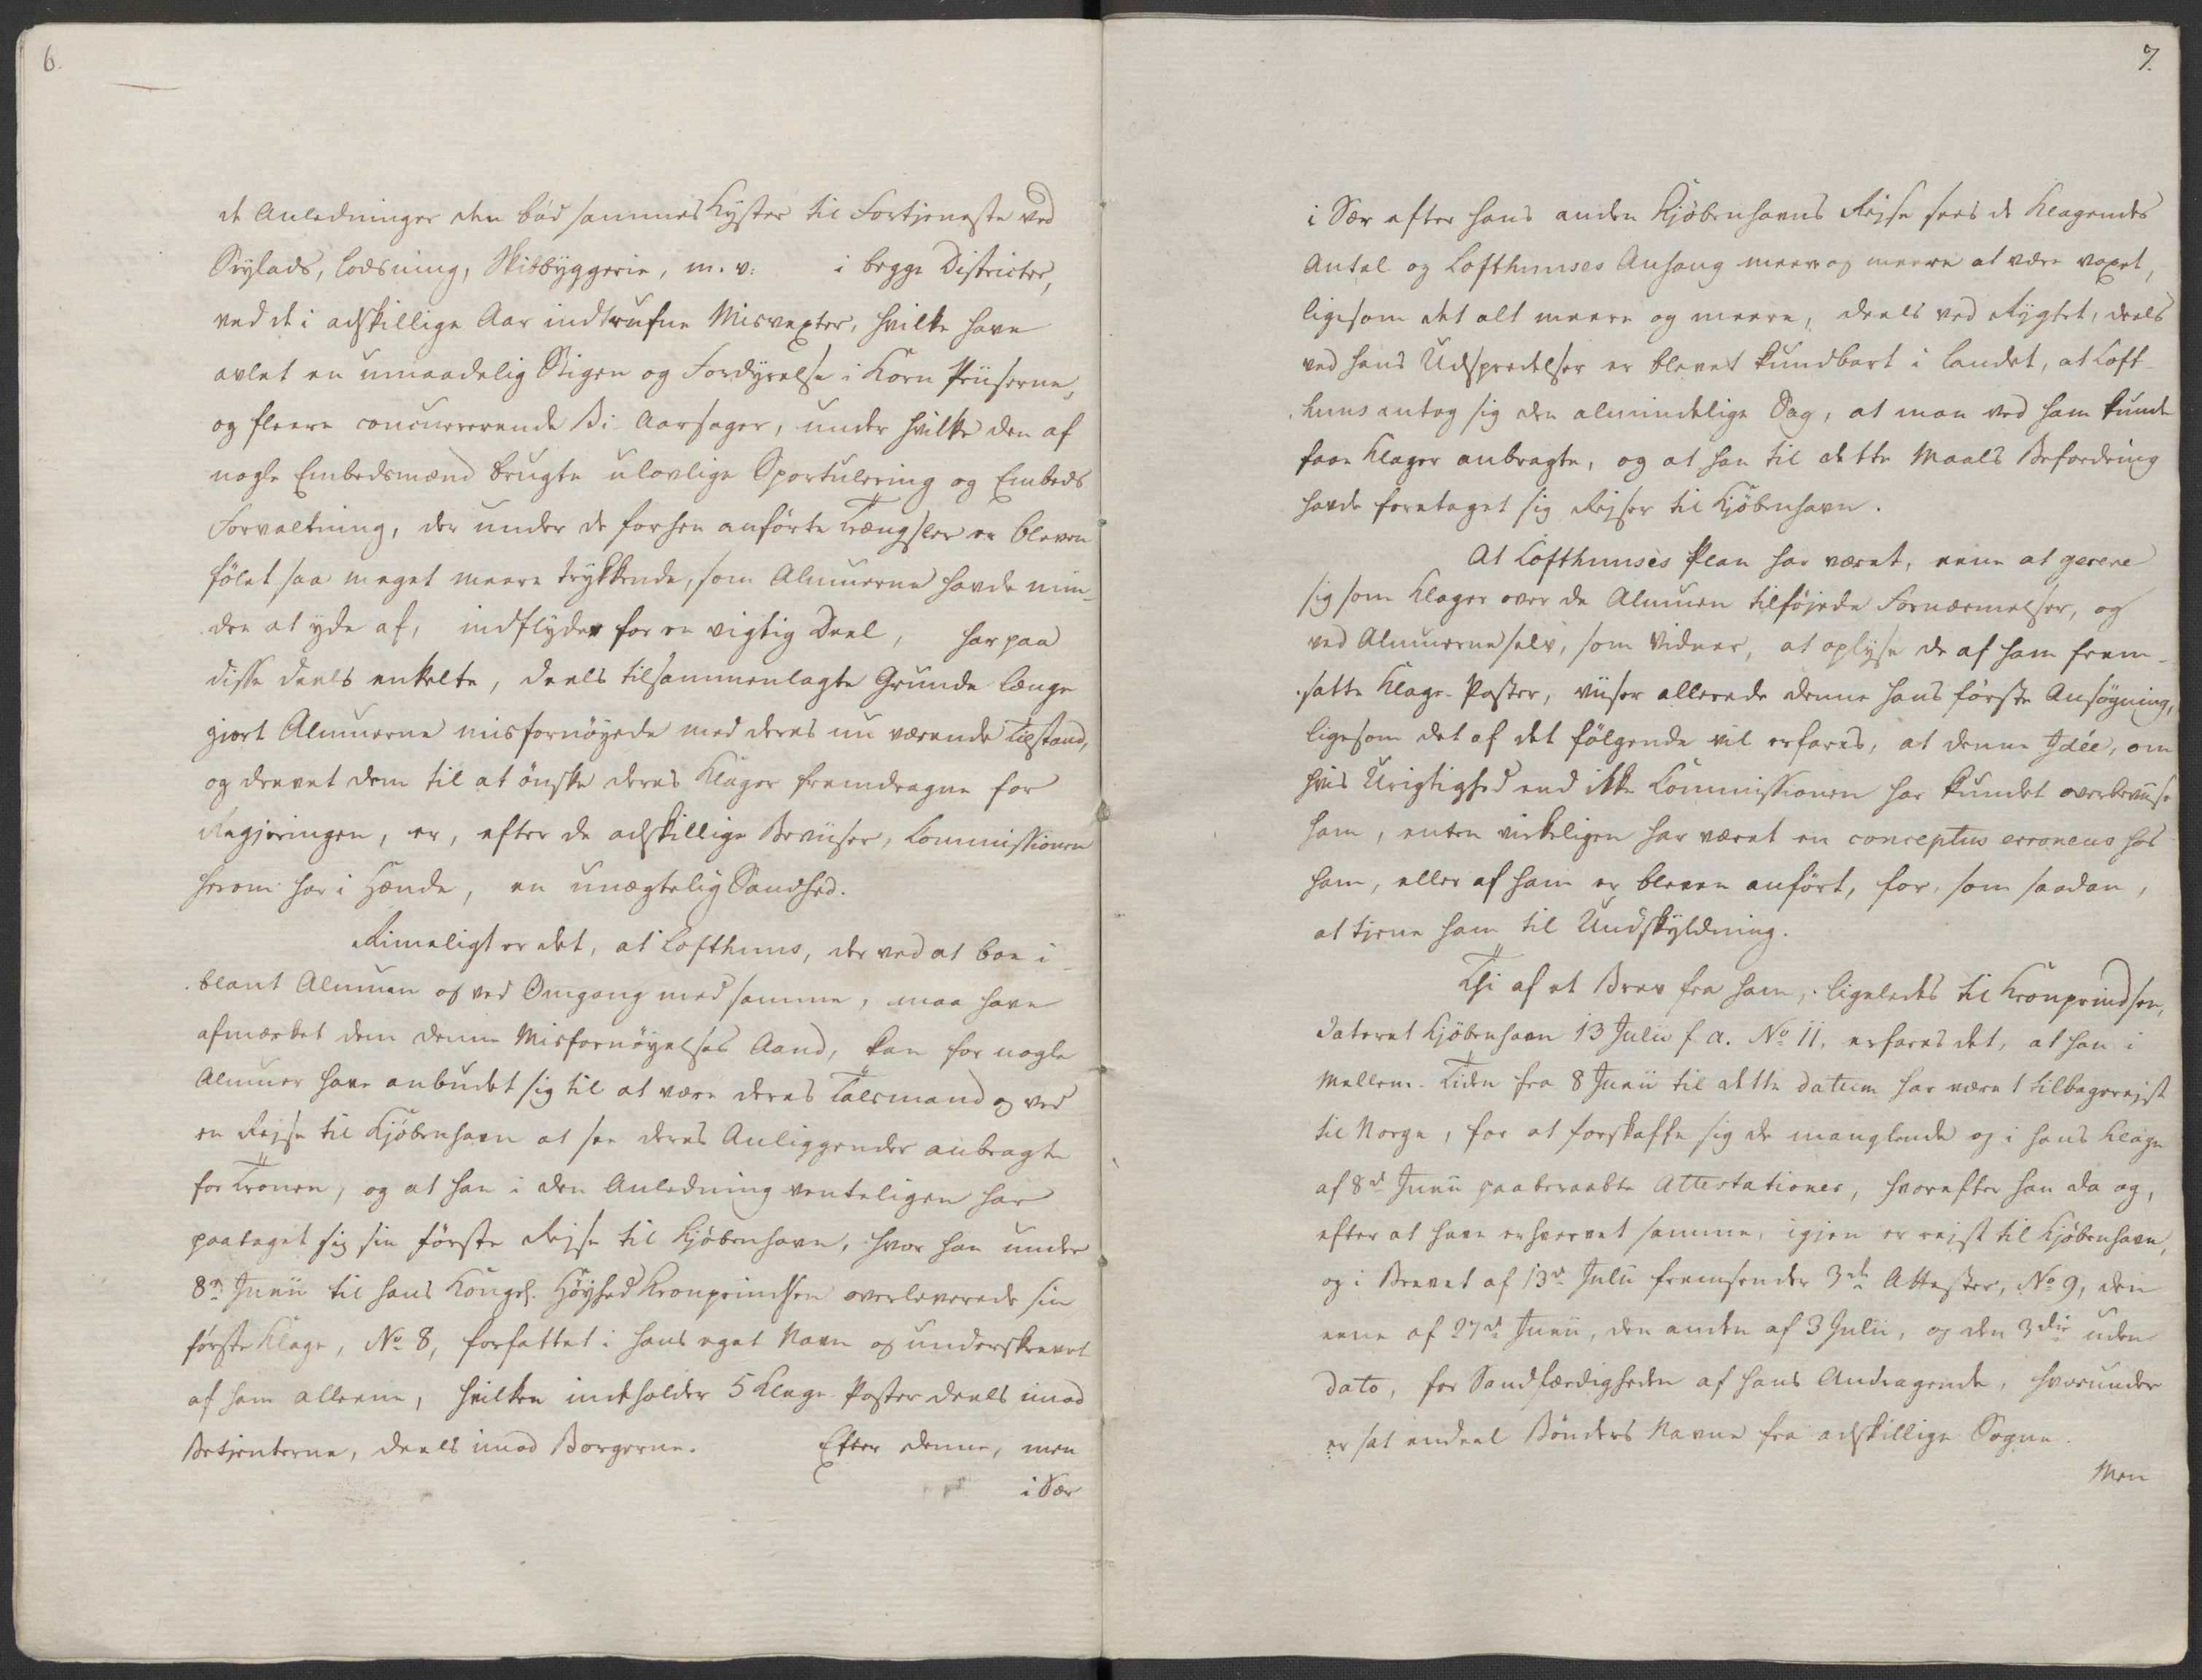 6.
de Anledninger den bød sammes Kyster til Fortjeneste ved
Sejlads, Lodsning, Skibbyggerie, m. v. i begge Districter,
ved de i adskillige Aar indtrufne Misvexter, hvilke have
avlet en umaadelig Stigen og Fordyrelse i Korn Priiserne,
og fleere concurrerende Bi-Aarsager, under hvilke den af
nogle Embedsmænd brugte ulovlige Sportulering og Embeds
Forvaltning, der under de forhen anførte Trængsler er bleven
følet saa meget meere trykkende, som Almuerne havde min-
dre at yde af, indflyder for en vigtig Deel, har paa
disse deels enkelte, deels tilsammenlagte Grunde længe
giort Almuerne misfornøyede med deres nu værende Tilstand,
og drevet dem til at ønske deres Klager fremdragne for
Regjeringen, er, efter de adskillige Beviiser, Commissionen
herom har i Hænde, en unægtelig Sandhed.
Rimeligt er det, at Lofthuus, der ved at boe i-
blant Almuen og ved Omgang med samme, maa have
afmærket dem denne Misfornøyelses Aand, kan for nogle
Almuer have anbudet sig til at være deres Talsmand og ved
en Rejse til Kjøbenhavn at see deres Anliggender anbragte
for Tronen, og at han i den Anledning venteligen har
paataget sig sin første Rejse til Kjøbenhavn, hvor han under
8n Junii til Hans Kongel. Høyhed Kronprindsen overleverede sin
første Klage, No 8, forfattet i hans eget Navn og underskrevet
af ham alleene, hvilken indeholder 5 Klage-Poster deels imod
Betjenterne, deels imod Borgerne. Efter denne, men
i Sær
7.
i Sær efter hans anden Kjøbenhavns Rejse sees de Klagendes
Antal og Lofthuuses Anhang meere og meere at være voxet,
ligesom det alt meere og meere, deels ved Rygtet, deels
ved hans Udspredelser er blevet kundbart i Landet, at Loft-
huus antog sig den almindelige Sag, at man ved ham kunde
faae Klager anbragte, og at han til dette Maals Befordring
havde foretaget sig Rejser til Kjøbenhavn.
At Lofthuuses Plan har været, eene at gerere
sig som Klager over de Almuen tilføjede Fornærmelser, og
ved Almuerne selv, som Vidner, at oplyse de af ham frem-
satte Klage-Poster, viiser allerede denne hans første Ansøgning,
ligesom det af det følgende vil erfares, at denne Idée, om
hvis Urigtighed end ikke Commissionen har kundet overbeviise
ham, enten virkeligen har været en conceptus erroneus hos
ham, eller af ham er bleven anført, for, som saadan,
at tjene ham til Undskyldning.
Thi af et Brev fra ham, ligeledes til Kronprindsen,
dateret Kjøbenhavn 13 Julii f. a. No 11, erfares det, at han i
Mellem-Tiden fra 8 Junii til dette datum har været tilbagerejst
til Norge, for at forskaffe sig de manglende og i hans Klage
af 8de Junii paaberaabte Attestationer, hvorefter han da og,
efter at have erhvervet samme, igjen er rejst til Kjøbenhavn,
og i Brevet af 13de Julii fremsender 3de Attester, No 9, den
eene af 27de Junii, den anden af 3 Julii, og den 3die uden
Dato, for Sandfærdigheden af hans Andragende, hvorunder
er sat endeel Bønders Navne fra adskillige Sogne.
Men